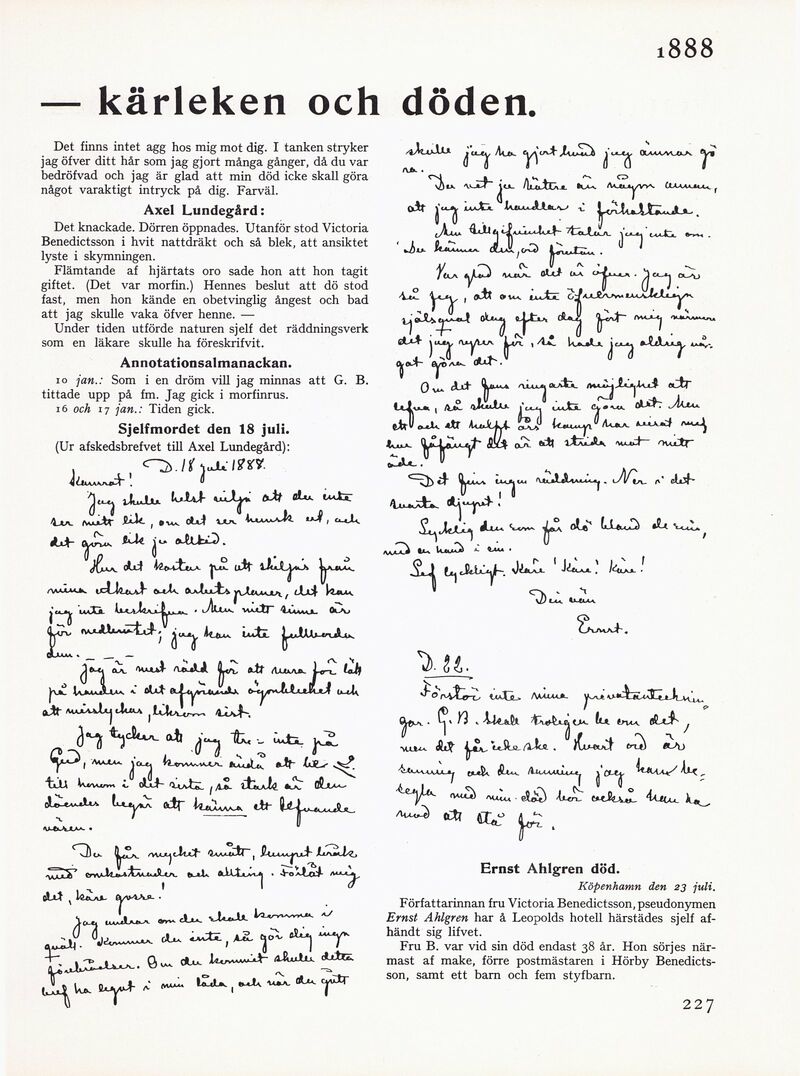 1888
— kärleken och döden.
Det finns intet agg hos mig mot dig. I tanken stryker
jag öfver ditt hår som jag gjort många gånger, då du var
bedröfvad och jag är glad att min död icke skall göra
något varaktigt intryck på dig. Farväl.
Axel Lundegård:
Det knackade. Dörren öppnades. Utanför stod Victoria
Benedictsson i hvit nattdräkt och så blek, att ansiktet
lyste i skymningen.
Flämtande af hjärtats oro sade hon att hon tagit
giftet. (Det var morfin.) Hennes beslut att dö stod
fast, men hon kände en obetvinglig ångest och bad
att jag skulle vaka öfver henne. —
Under tiden utförde naturen sjelf det räddningsverk
som en läkare skulle ha föreskrifvit.
Annotationsalmanackan.
10 jan.: Som i en dröm vill jag minnas att G. B.
tittade upp på fm. Jag gick i morfinrus.
16 och 17 jan.: Tiden gick.
Sjelfmordet den 18 juli.
(Ur afskedsbrefvet till Axel Lundegård):
D. 18 juli 1888.
Kamrat!
Jag skulle helst vilja att du inte
ser mitt lik, om det ser hemskt ut, och
det göra lik ju alltid.
Hur det kostar på att skiljas från
mina utkast och arbetsplaner, det kan
jag inte beskrifva. Men mitt sinne är
för nedbrutet; jag kan inte fullborda
dem. — — —
Jag är mest rädd för att vara för lätt
på handen i det afgörande ögonblicket och
att misslyckas, liksom sist.
Jag tycker att jag tror inte på
Gud, men jag kommer ändå att be
till honom i det sista, så stark är den
döendes begär att känna ett lefvande
väsen.
Du får mycket smått, lumpet bråk
med omkostnader och allting. Förlåt mig
det, kära gosse.
Jag undrar om du skall komma i
qväll. Kommer du inte, så gör dig inga
förebråelser. Om du kommit skulle detta
bref ha legat i min låda, och när du gått
skulle jag ha gjort hvad jag ämnar gö
ra.
Du vet ju bättre än någon annan,
att jag inte handlar i förhastande.
Min tillgifvenhet talar jag inte om.
Du känner den, ord förutan.
Var glad när det är öfver. Jag är
så jag, att om inte öfvermensklig
själsqval dag efter dag fört mig närmare
det jag ryser för, så hade jag aldrig nå-
got göra det.
Om det fans ringaste möjlighet att
lefva, så skulle jag inte göra det. Men
ett och ett halft års kamp har visat mig
hur fåfängt det är att strida mot mitt
öde.
Det fins ingen räddning. Ner i det
svarta djupet!
Lycklig den som får dö bland de sina,
med en hand i sin.
Lef lyckligt. Kära! Kära! Kära!
Din vän
Ernst.
D. 22.
Förstör inte mina privatantecknin-
gar. G. B. skall troligen be om det,
men det får icke ske. Hvart ord är
sanning och den sanning jag kan be-
segla med min död bör också han ha
mod att stå för.
Ernst Ahlgren död.
Köpenhamn den 23 juli.
Författarinnan fru Victoria Benedictsson, pseudonymen
Ernst Ahlgren har å Leopolds hotell härstädes sjelf af-
händt sig lifvet.
Fru B. var vid sin död endast 38 år. Hon sörjes när-
mast af make, förre postmästaren i Hörby Benedicts-
son, samt ett barn och fem styfbarn.
227